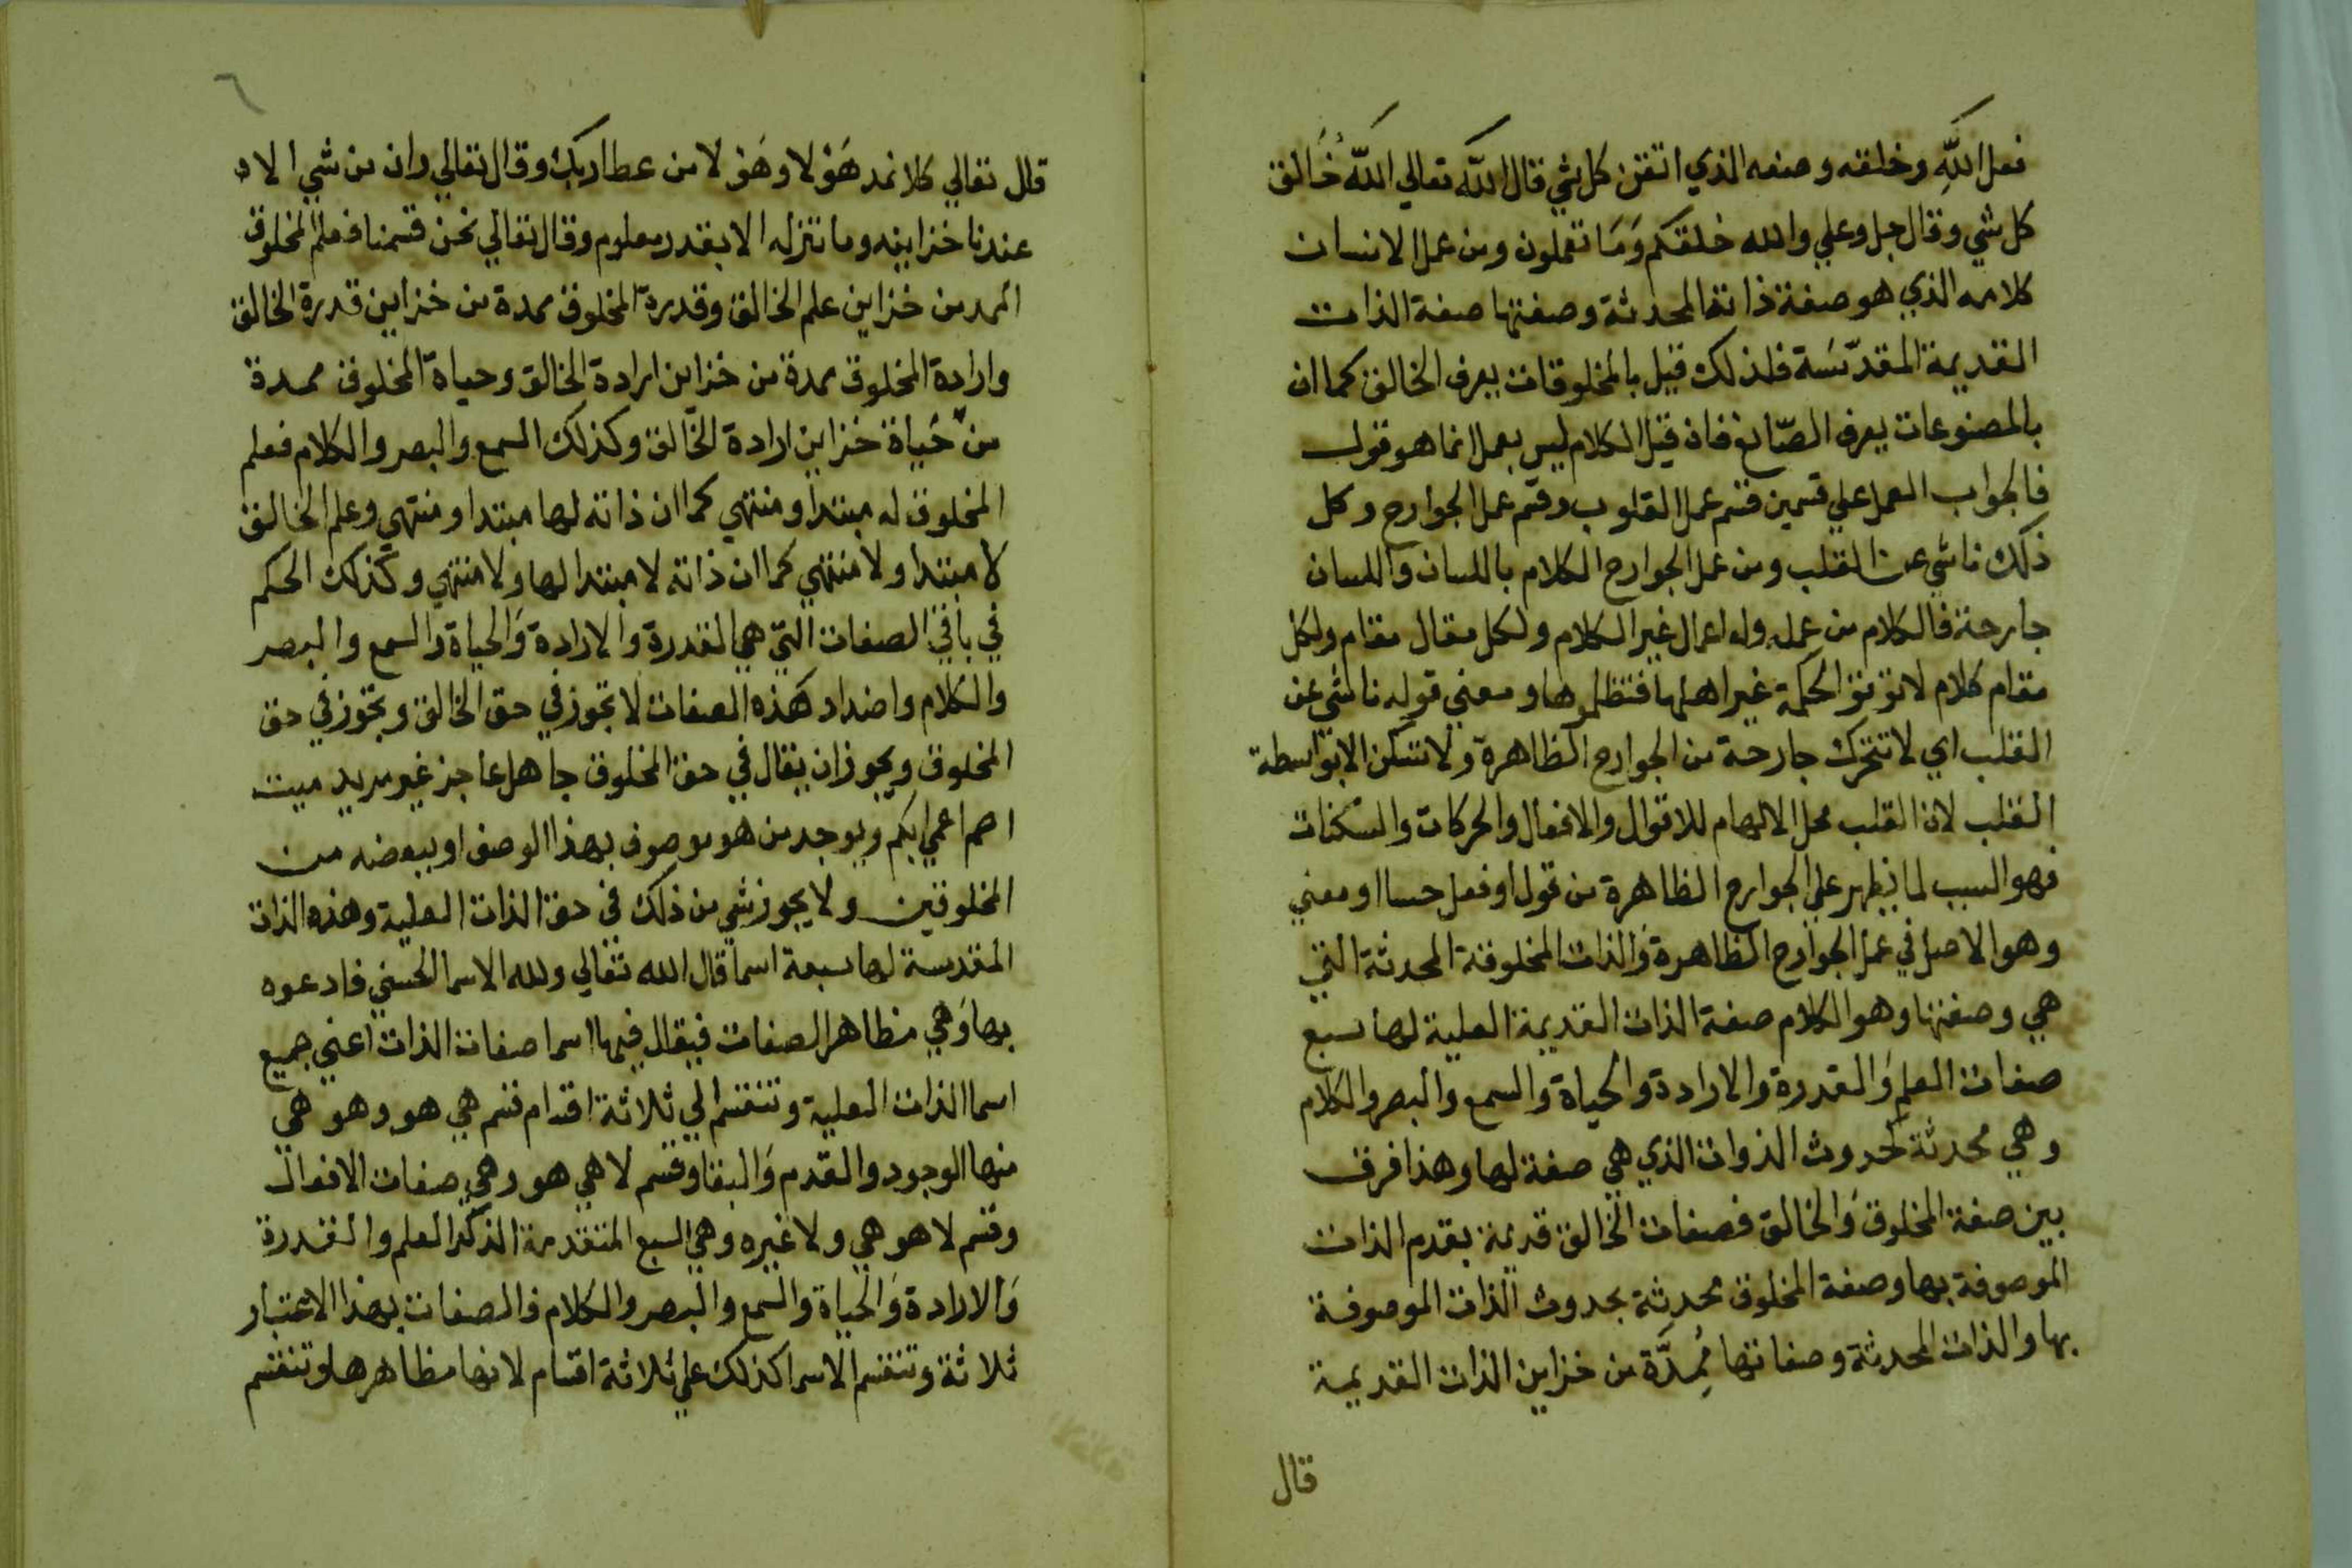 فعل الله وخلقه وصنعه الذي اتقن كل شي قال الله تعالي الله خالق
كل شي وقال جل وعلي والله خلقكم وَمَا تعملون ومن عمل الانسان
كلامه الذي هو صفة ذاتها المحدثة وصفتها صفة الذات
القديمة المقدّسَة فلذلك قيل بالمخلوقات يعرف الخالق كما ان
بالمصنوعات يعرف الصّانع فان قيل الكلام ليس بعمل انما هو قول
فالجواب العمل علي قسمين قسم عمل القلوب وقسم عمل الجوارح وكل
ذلك ناشي عن القلب ومن عمل الجوارح الكلام باللسان واللسان
جارحة فالكلام من عمله وله اعمال غير الكلام ولكل مقال مقام ولكل
مقام كلام لا تؤتو الحكمة غير اهلها فتظلموها ومعني قوله ناشي عن
القلب اي لا تتحرك جارحة من الجوارح الظاهرة ولا تسكن الا بواسطة
القلب لان القلب محل الالهام للاقوال والافعال والحركات والسكنات
فهو السبب لما يظهر علي الجوارح الظاهرة من قول او فعل حسا او معني
وهو الاصل في عمل الجوارح الظاهرة وَالذات المخلوقة المحدثة التي
هي وصفتها وهو الكلام صفة الذات القديمة العلية لها سبع
صفات العلم وَالقدرة والارادة والحياة والسمع والبصر والكلام
وهي محدثة لحدوث الذوات الذي هي صفة لها وهذا فرق
بين صفة المخلوق وَالخالق فصفات الخالق قديمة بقدم الذات
الموصوفة بها وصفة المخلوق محدثة بحدوث الذات الموصوفة
بها والذات المحدثة وصفاتها مُمِدَّة من خزاين الذات القديمة
قال
٦
قال تعالي كلا نمد هَؤلا وهَؤلا من عطا ربك وقال تعالي وان من شي الا
عندنا خزاينه وما ننزله الا بقدر معلوم وقال تعالي نحن قسمنا فعلم المخلوق
الممد من خزاين علم الخالق وقدرة المخلوق ممدة من خزاين قدرة الخالق
وارادة المخلوق ممدة من خزاين ارادة الخالق وحياة المخلوق ممدة
من حَياة خزاين ارادة الخالق وكذلك السمع والبصر والكلام فعلم
المخلوق له مبتدا ومنتهي كما ان ذاته لها مبتدا ومنتهي وعلم الخالق
لا مبتدا ولا منتهي كما ان ذاته لا مبتدا لها ولا منتهي وكذلك الحكم
في باقي الصفات التي هي القدرة والارادة وَالحياة والسمع والبصر
والكلام واضداد هَذه الصفات لا تجوز في حق الخالق وتجوز في حق
المخلوق ويجوز ان يقال في حق المخلوق جاهل عاجز غير مريد ميت
اصم اعمي ابكم ويوجد من هو موصوف بهذا الوصف او ببعضه من
المخلوقين ولا يجوز شي من ذلك في حق الذات العلية وهذه الذات
المقدسة لها سبعة اسما قال الله تعالي ولله الاسما الحسني فادعوه
بها وَهي مظاهر الصفات فيقال فيها اسما صفات الذات اعني جميع
اسما الذات العلية وتنقسم الي ثلاثة اقسام قسم هي هو وهو هي
منها الوجود والقدم وَالبقا وقسم لا هي هو وهي صفات الافعال
وقسم لا هو هي ولا غيره وهي السبع المتقدمة الذكر العلم والقدرة
وَالارادة وَالحياة والسمع والبصر والكلام فالصفات بهذا الاعتبار
ثلاثة وتنقسم الاسما كذلك علي ثلاثة اقسام لانها مظاهرها وتنقسم